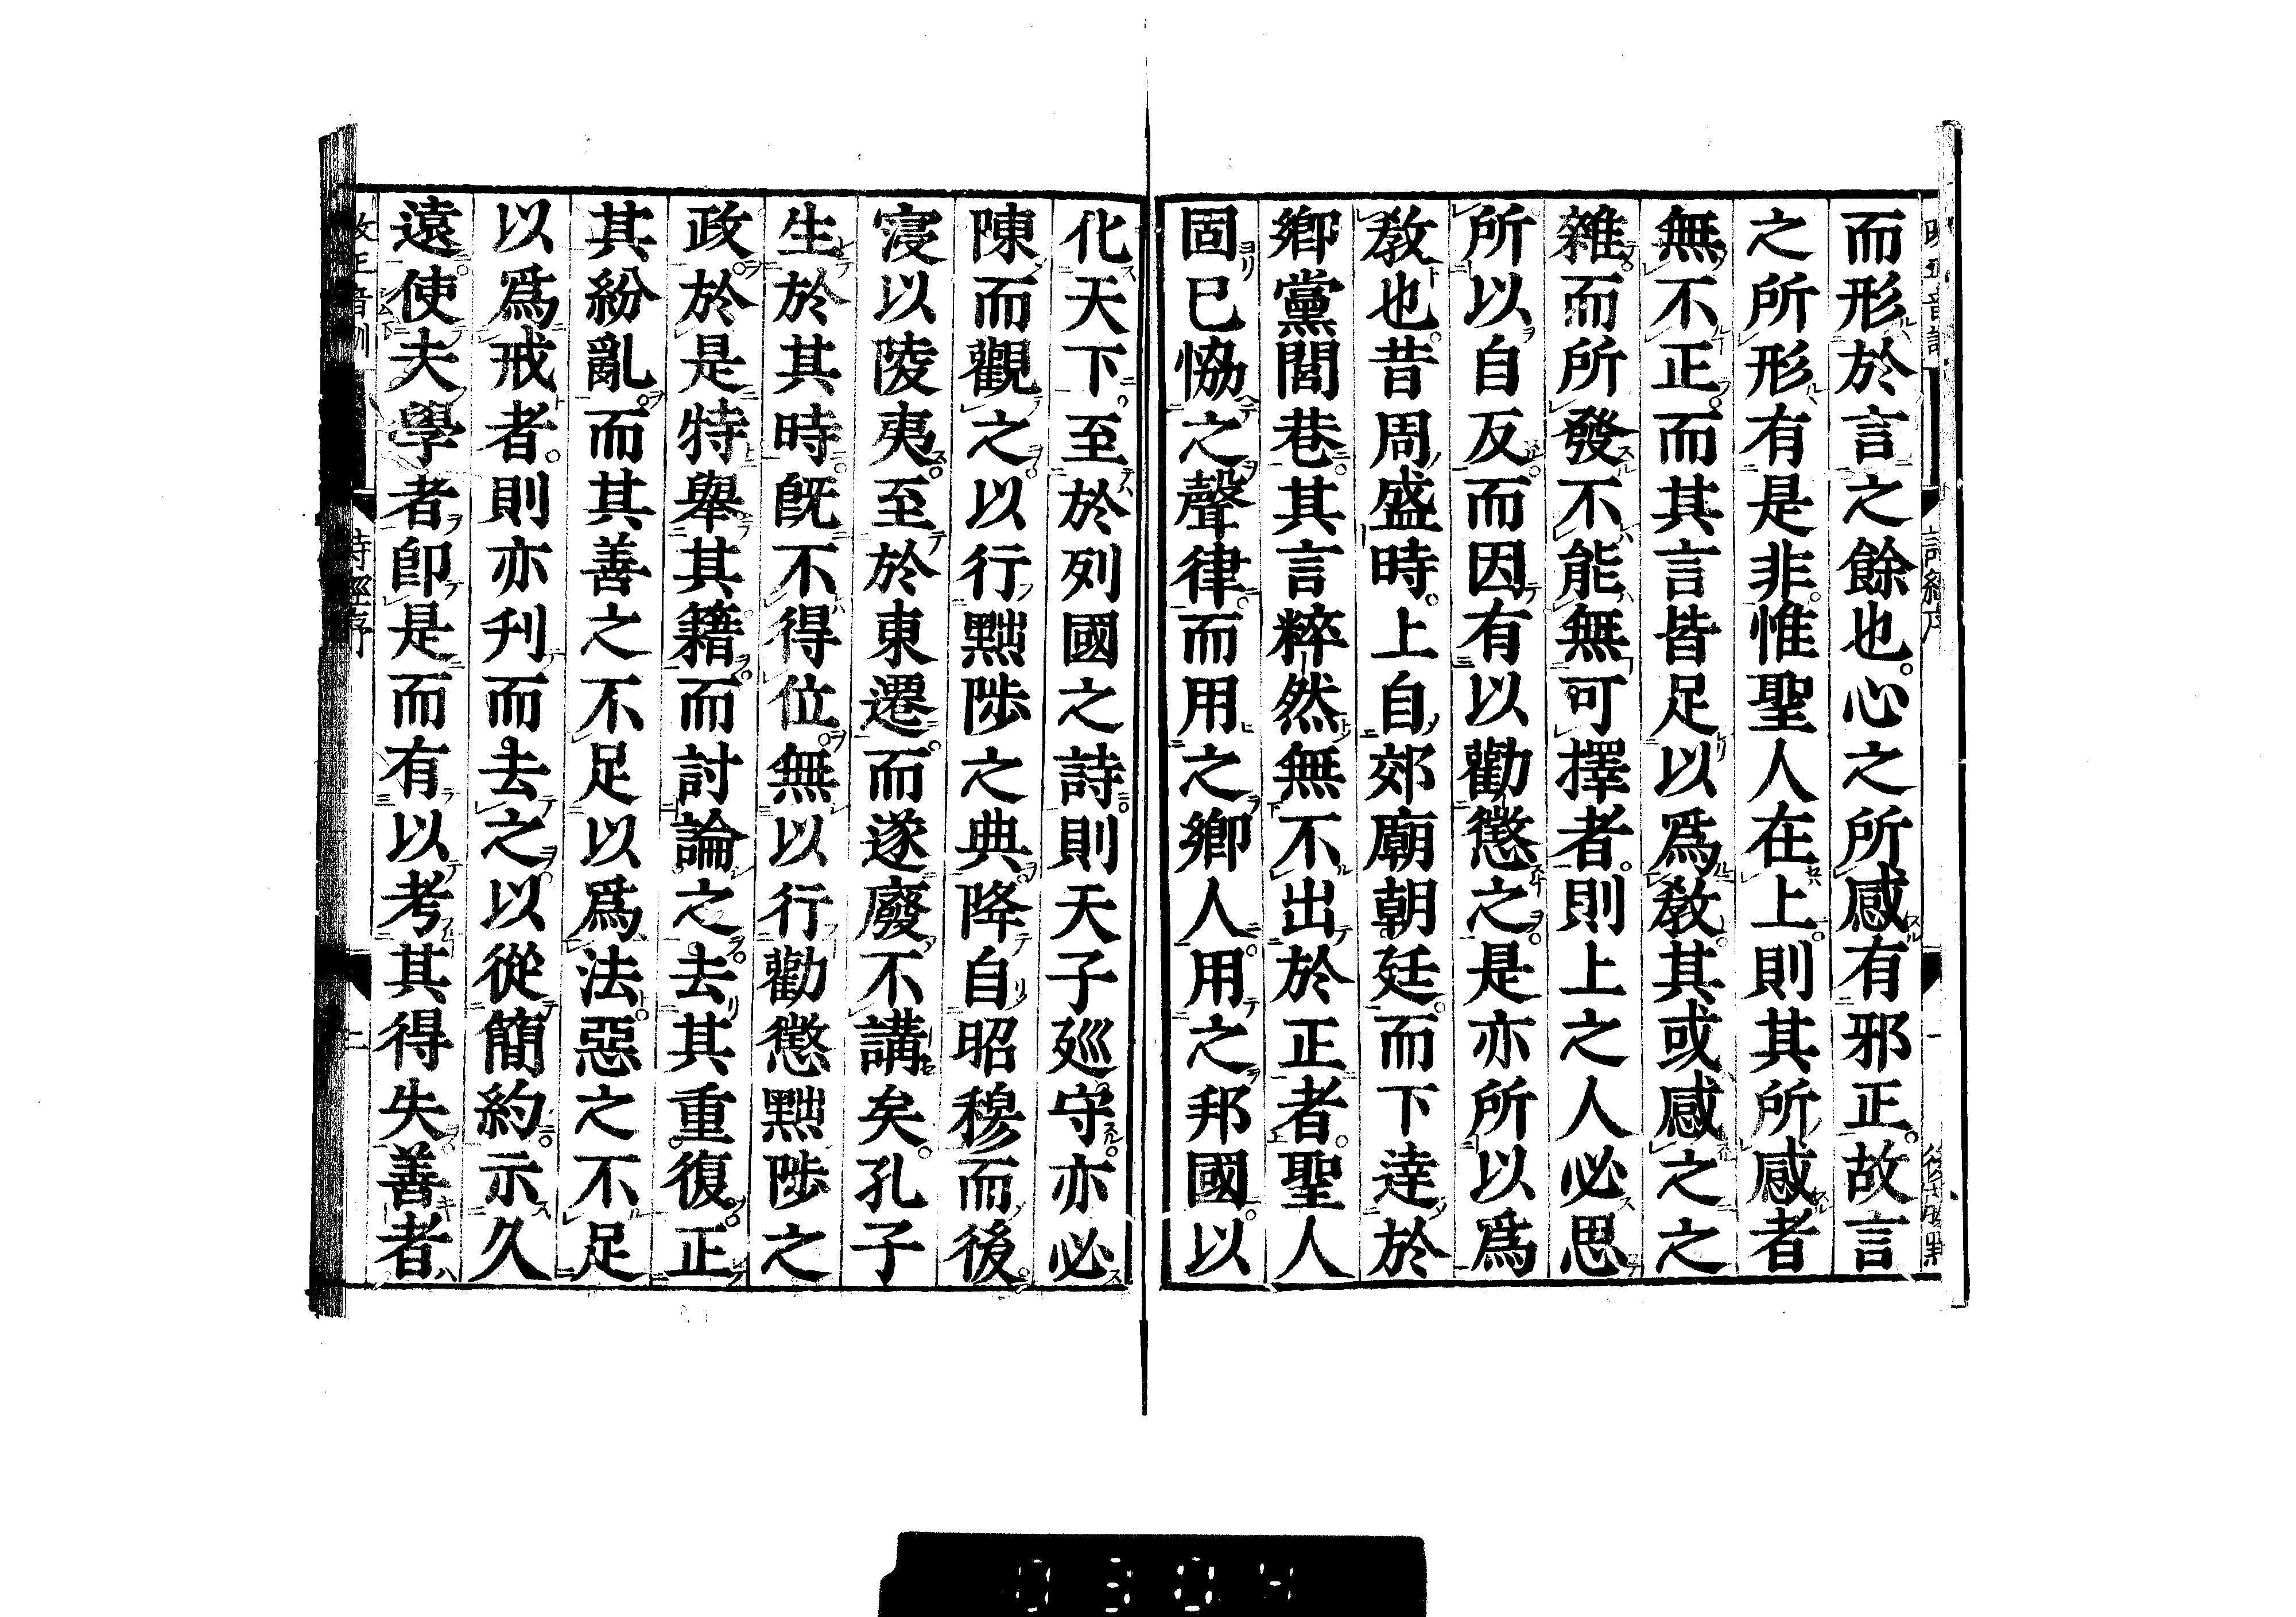 而形於言之餘也。心之所感有邪正。故言
之所形有是非。惟聖人在上。則其所感者
無不正。而其言皆足以爲敎。其或感之之
雜。而所發不能無可擇者。則上之人必思
所以自反。而因有以勸懲之。是亦所以爲
敎也。昔周盛時。上自郊廟朝廷。而下達於
鄉黨閭巷。其言粹然無不出於正者。聖人
固已恊之聲律。而用之鄉人。用之邦國。以
化天下。至於列國之詩。則天子廵守。亦必
陳而觀之。以行黜陟之典。降自昭穆而後。
寖以陵夷。至於東遷。而遂廢不講矣。孔子
生於其時。旣不得位。無以行勸懲黜陟之
政。於是特舉其籍。而討論之。去其重。復。正
其紛亂。而其善之不足以爲法。惡之不足
以爲戒者。則亦刋而去之。以從簡約。示久
遠。使夫學者卽是而有以考其得失善者
詩經序
0304